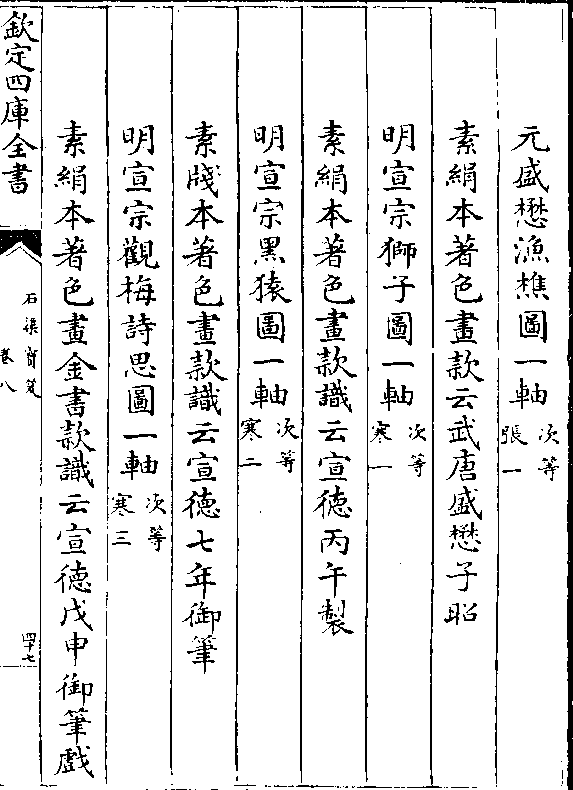 元盛懋漁樵圖一軸 次等張一
素絹本著色畫款云武唐盛懋子昭
明宣宗獅子圖一軸 次等寒一
素絹本著色畫款識云宣徳丙午製
明宣宗黑猿圖一軸 次等寒二
素牋本著色畫款識云宣徳七年御筆
明宣宗觀梅詩思圖一軸 次等寒三
素絹本著色畫金書款識云宣徳戊申御筆戲
欽定四庫全書
石渠寳笈
卷八
四十七